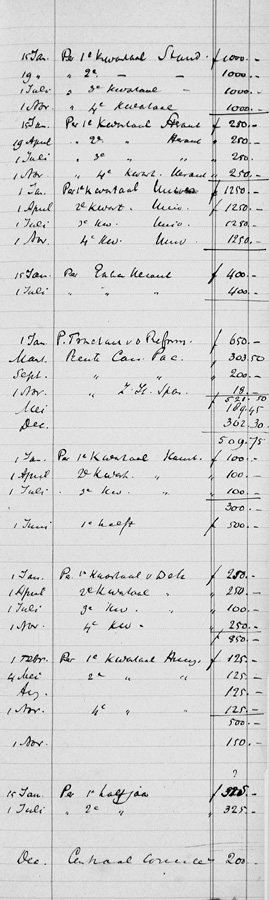 15 Jan. Per 1e Kwartaal Stand. f 1000.-
19 " " 2e - - 1000.-
1 Juli " 3e Kwartaal - 1000.-
1 Nov. " 4e Kwartaal 1000.-
15 Jan. Per 1e Kwartaal f 250.-
19 April " 2e " " 250.-
1 Juli " 3e " " 250.
1 Nov. " 4e Kwart. " 250.-
1 Jan. Per 1e Kwartaal f 1250.-
1 April 2e Kwart. Univ. f 1250.-
1 Juli 3e Kw. Univ. 1250.-
1 Nov. 4e Kw. Univ. 1250.-
15 Jan. Per f 400.-
1 Juli " " " 400.-
1 Jan. f 650.-
Maart Rente Can. Pac. 303.50
Sept. " " 200.-
1 Nov. " 18.-
f 521.50
Mei 189.45
Dec. 362.30
509.75
1 Jan. Per 1e Kwartaal f 100.-
1 April 2e Kwart. " f 100.-
1 Juli 3e Kw. " 100.-
300.-
1 Juni 1e helft f 500.-
1 Jan. Per 1e Kwartaal v. f 250.-
1 April 2e Kwartaal " 250.-
1 Juli 3e Kw. " f 100.-
1 Nov. 4e Kw - " 250.-
f 850.-
1 Febr. Per 1e Kwartaal f 125.-
4 Mei 2e " " 125.-
Aug. 125.-
1 Nov. 4e " 125.-
500.-
1 Nov. 150.-
?
15 Jan. Per 1e halfjaar f 325.-
1 Juli " 2e " f 325.-
Dec. Centraal 200.-